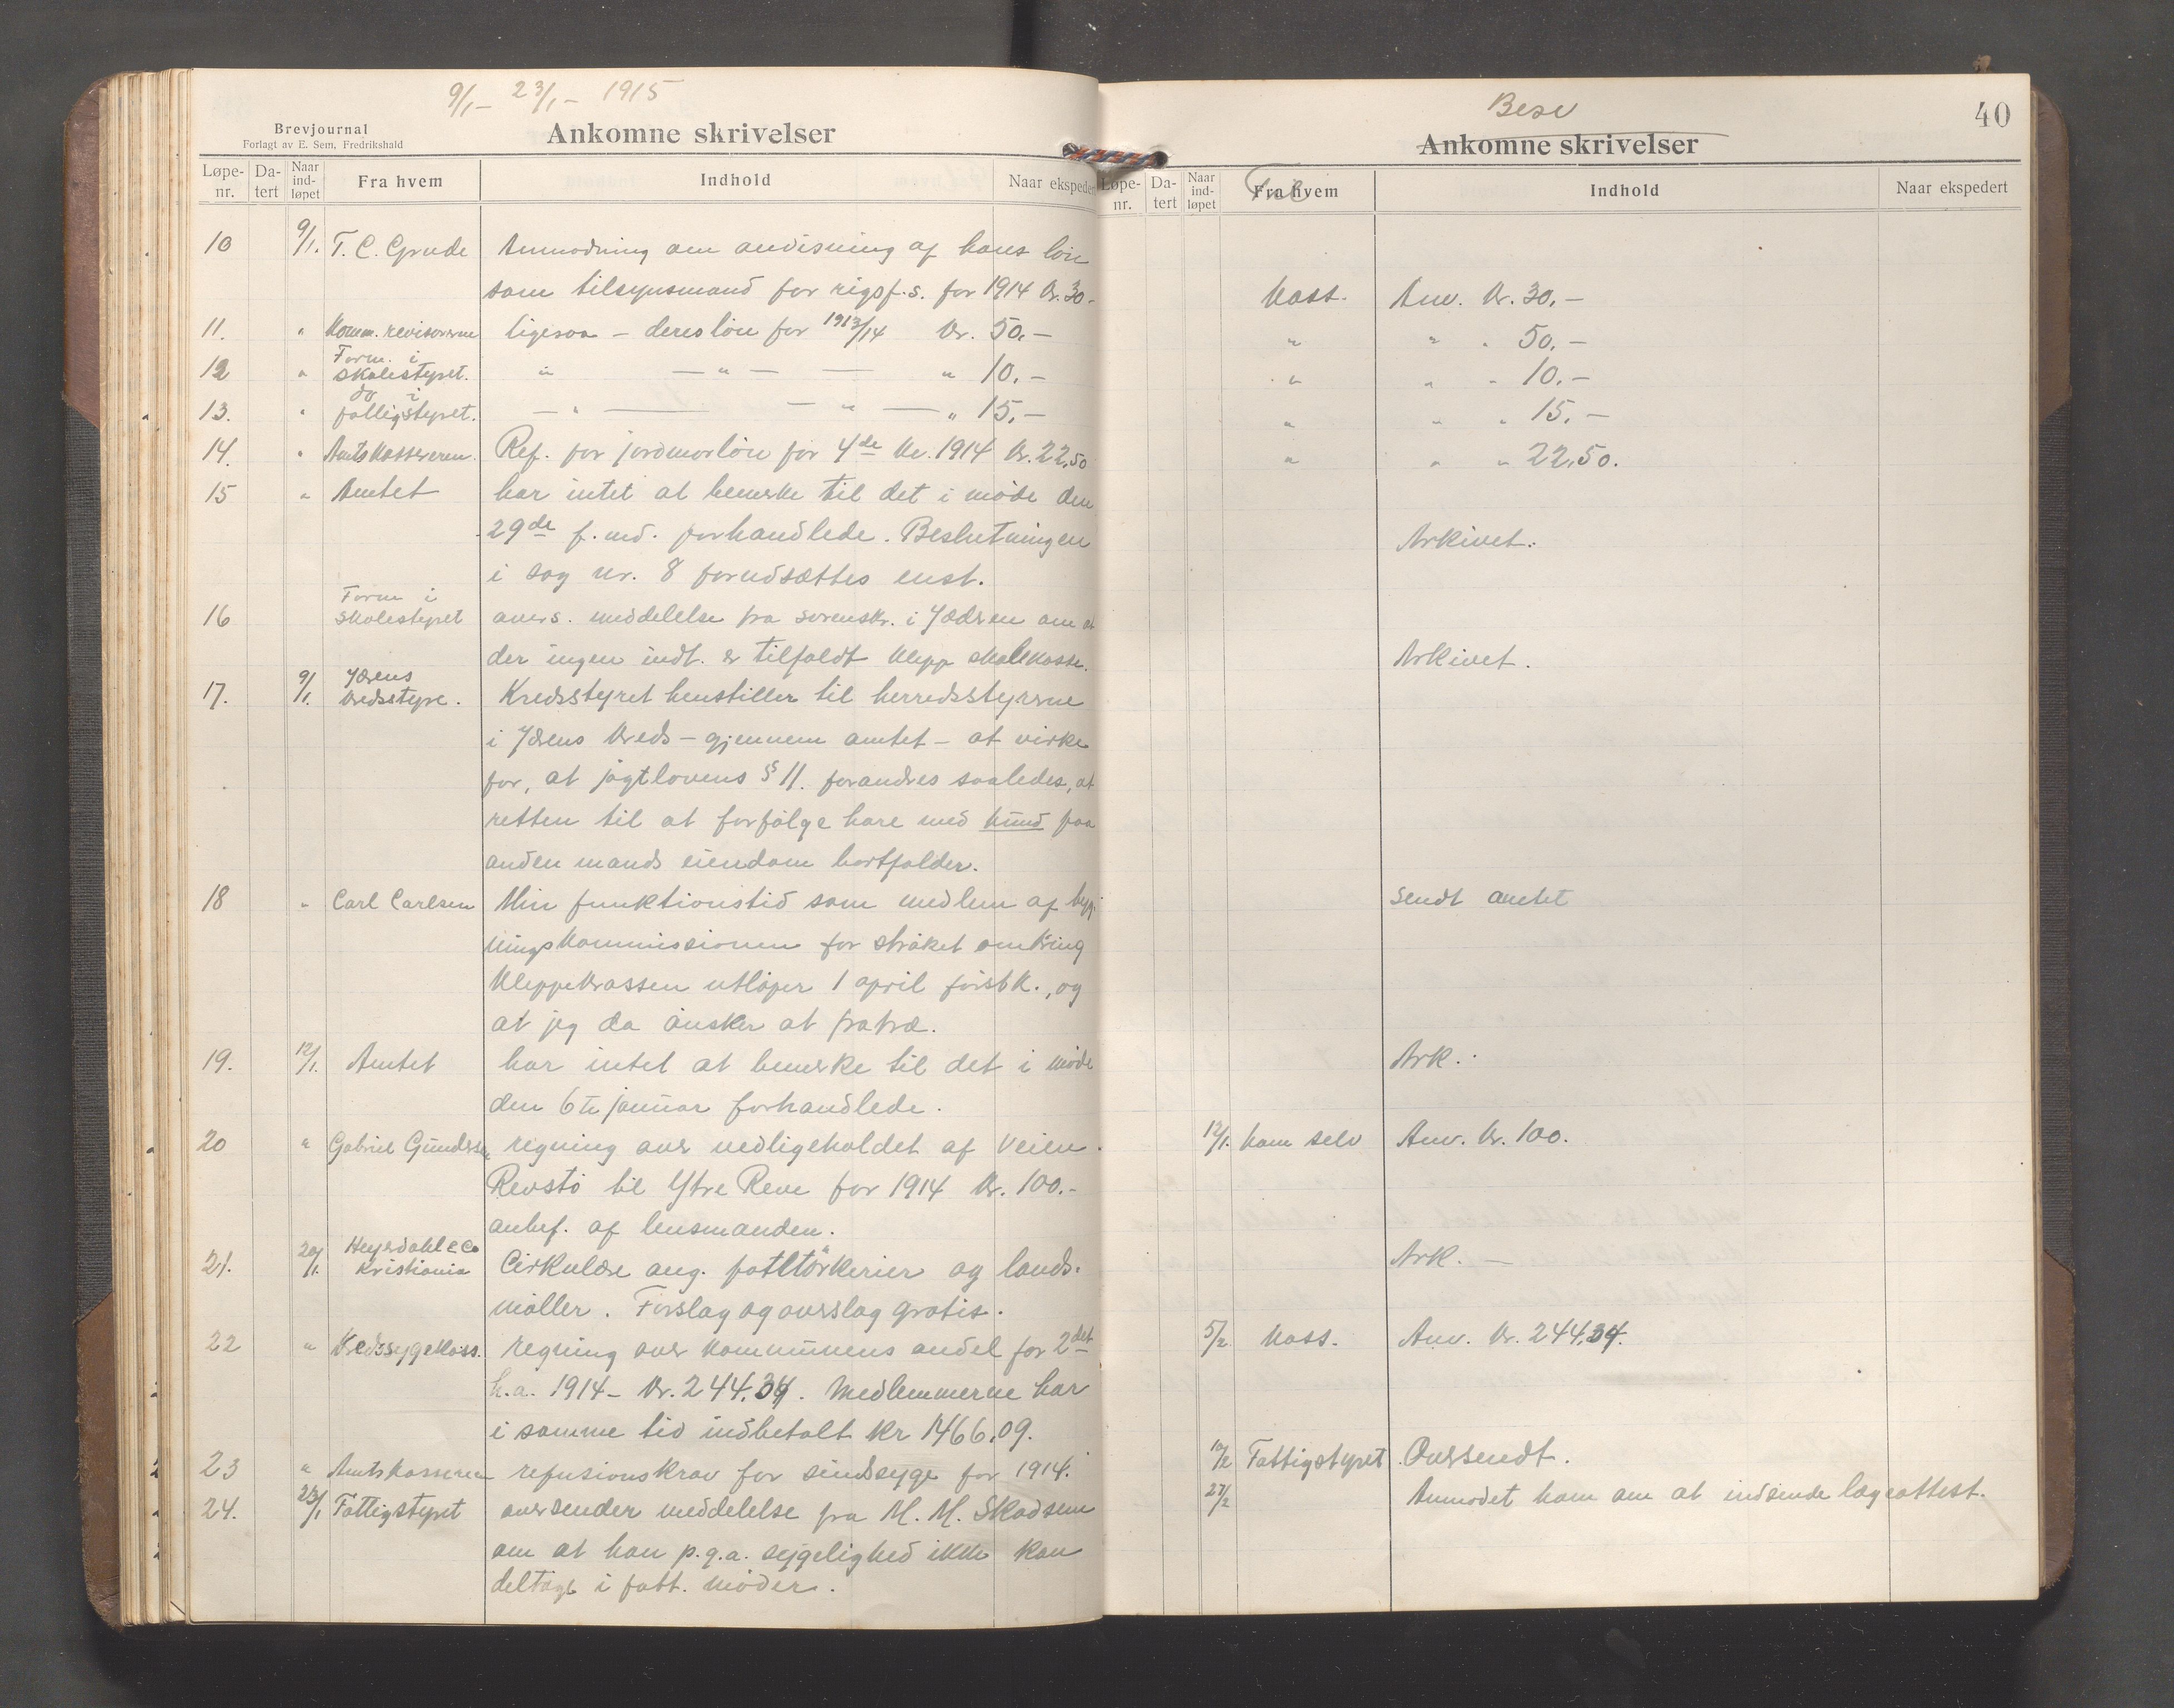 9/1 – 23/1 – 1915
Brevjournal
Forlagt av E. Sem, Fredrikshald
Ankomne skrivelser
Løpe-nr. Da-tert Naar ind-løpet Fra hvem Indhold Naar ekspedert
10 9/1. T. C. Grude Anmodning om anvisning af hans løn
som tilsynsmand for rigsf.s. for 1914 Kr. 30.-
11. " Komm. revisorerne ligesaa – deres løn for 1913/14 Kr. 50,-
12 " Form. i skolestyret. " — " — — " 10.-
13. " do i fattigstyret. — " — — " — " 15,-
14. " Amtskassereren. Ref. for jordmorløn for 4de Kv. 1914 Kr. 22,50
15 " Amtet har intet at bemerke til det i møde den
29de f. md. forhandlede. Beslutningen
i sag nr. 8 forudsættes enst.
16 Form i skolestyret overs. meddelelse fra sorenskr. i Jæderen om at
der ingen indt. er tilfaldt Klepp skolekasse.
17. 9/1. Jærens kredsstyre. Kredsstyret henstiller til herredsstyrerne
i Jærens kreds – gjennem amtet – at virke
for, at jagtlovens § 11. forandres saaledes, at
retten til at forfølge hare med hund paa
anden mands eiendom bortfalder.
18 " Carl Carlsen Min funktionstid som medlem af byg-
ningskommissionen for strøket omkring
Kleppekrossen utløper 1 april førstk., og
at jeg da ønsker at fratræ.
19. 12/1. Amtet har intet at bemerke til det i møde
den 6te januar forhandlede.
20 " Gabriel Gundersen regning over vedligeholdet af veien
Revstø til Ytre Reve for 1914 Kr. 100.-
anbef. af lensmanden.
21. 20/1. Heyerdahl & Co Kristiania Cirkulære ang. felttørkerier og lands-
møller. Forslag og overslag gratis.
22 " Kredssygekass. regning over kommunens andel for 2det
h.a. 1914 – Kr. 244.34. Medlemmerne har
i samme tid indbetalt Kr 1466.09.
23 " Amtskassereren refusionskrav for sindssyge for 1914.
24. 23/1 Fattigstyret oversender meddelelse fra M. M. Skadsem
om at han p.g.a. sygelighed ikke kan
deltage i fatt. møder.
Besv
40
Ankomne skrivelser
Løpe-nr. Da-tert Naar ind-løpet Fra hvem Indhold Naar ekspedert
Til
Kass. Anv. Kr. 30.-
" " " 50,-
" " " 10.-
" " " 15.-
" " " 22,50.
Arkivet.
Arkivet.
Sendt amtet
Ark.
12/1. ham selv Anv. Kr. 100.
Ark. —
5/2 Kass. Anv. Kr. 244.34.
10/2 Fattigstyret Oversendt.
27/2 Anmodet ham om at indsende lægeattest.